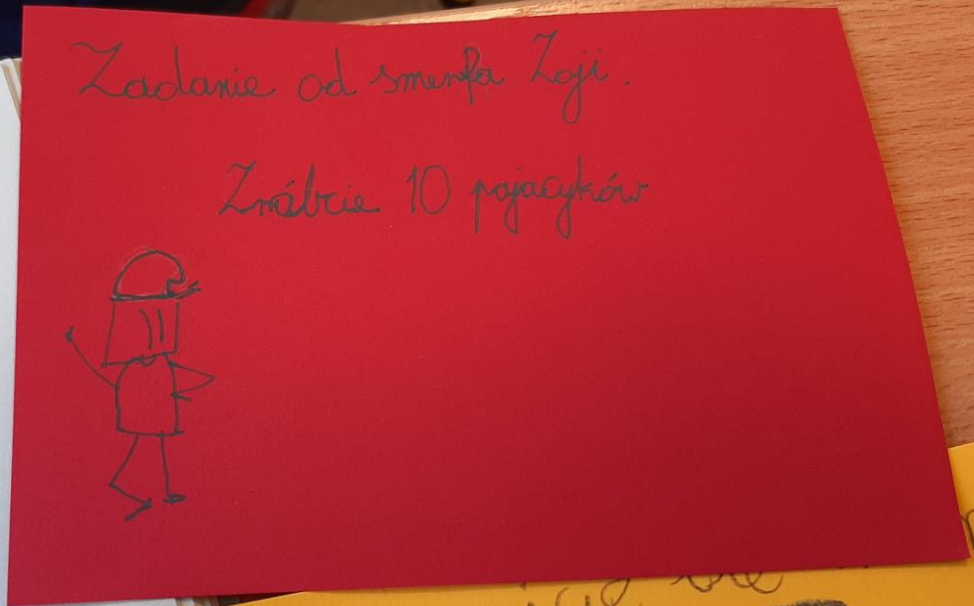 Zadanie od smerfa Zoji.
Zróbcie 10 pajacyków